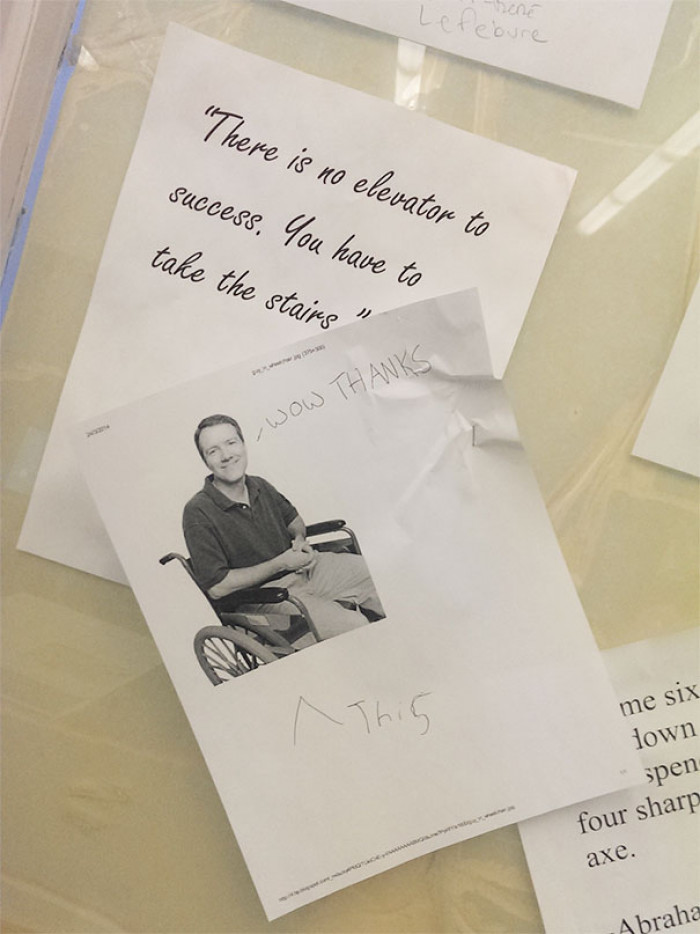 Lefebure
"There is no elevator to
success. You have to
take the stairs."
guy_in_wheelchair.jpg (375×360)
WOW THANKS
^ This
me six
down
spen
four sharp
axe.
Abraha